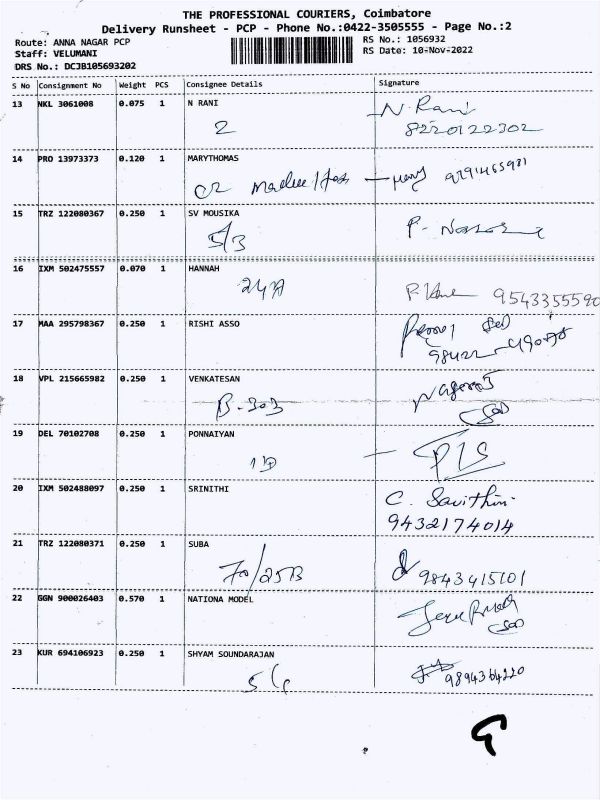 THE PROFESSIONAL COURIERS, Coimbatore
Delivery Runsheet - PCP - Phone No.:0422-3505555 - Page No.:2
Route: ANNA NAGAR PCP
Staff: VELUMANI
DRS No.: DCJB105693202
RS No.: 1056932
RS Date: 10-Nov-2022
S No Consignment No Weight PCS Consignee Details Signature
13 NKL 3061008 0.075 1 N RANI N. Rani
2 8220122302
14 PRO 13973373 0.120 1 MARYTHOMAS
15 TRZ 122080367 0.250 1 SV MOUSIKA
5/3
16 IXM 502475557 0.070 1 HANNAH
247A 9543355590
17 MAA 295798367 0.250 1 RISHI ASSO
18 VPL 215665982 0.250 1 VENKATESAN
B-303
19 DEL 70102708 0.250 1 PONNAIYAN
20 IXM 502488097 0.250 1 SRINITHI C. Savithiri
9432174014
21 TRZ 122080371 0.250 1 SUBA
70/25B 9843415101
22 GGN 900026403 0.570 1 NATIONA MODEL
23 KUR 694106923 0.250 1 SHYAM SOUNDARAJAN
9894364220